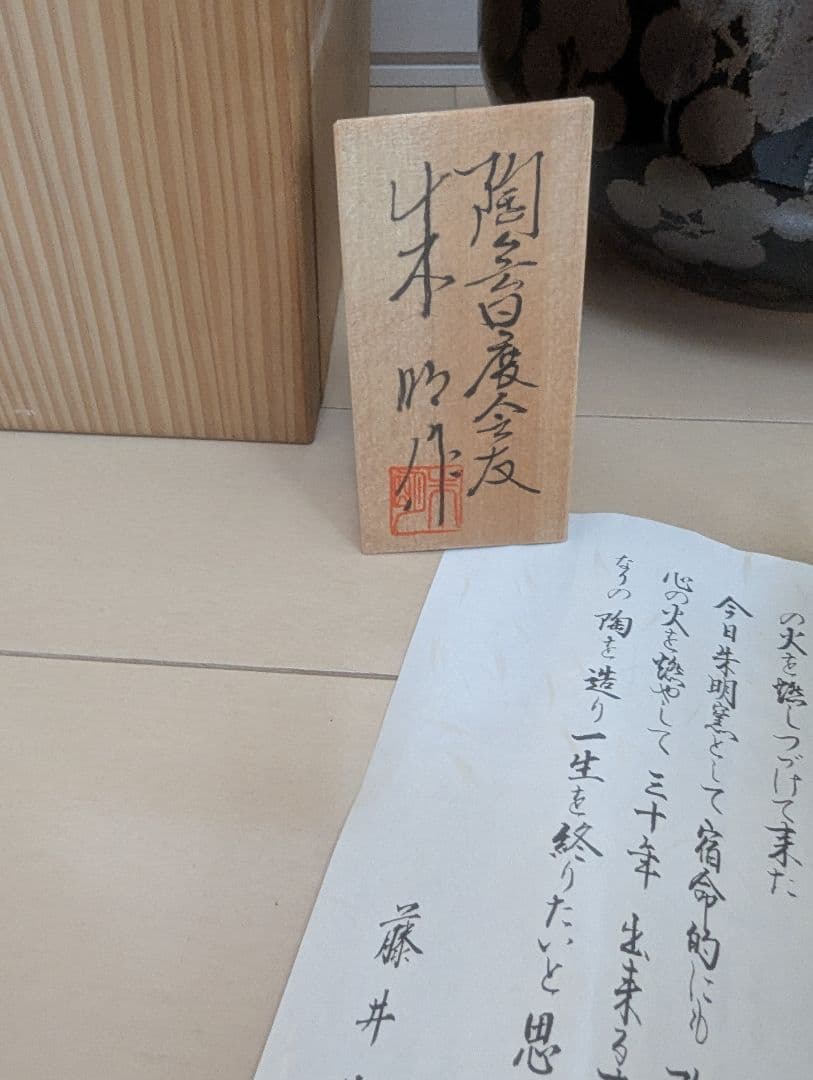 陶芸日度会友
朱明作
の火を燃しつづけて来た
今日朱明窯として宿命的にも
心の火を燃やして三十年出来る
なりの陶を造り一生を終りたいと思
藤井